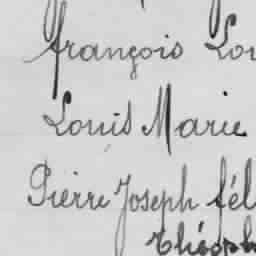 françois Lou
Louis Marie
Pierre Joseph fél
Théoph